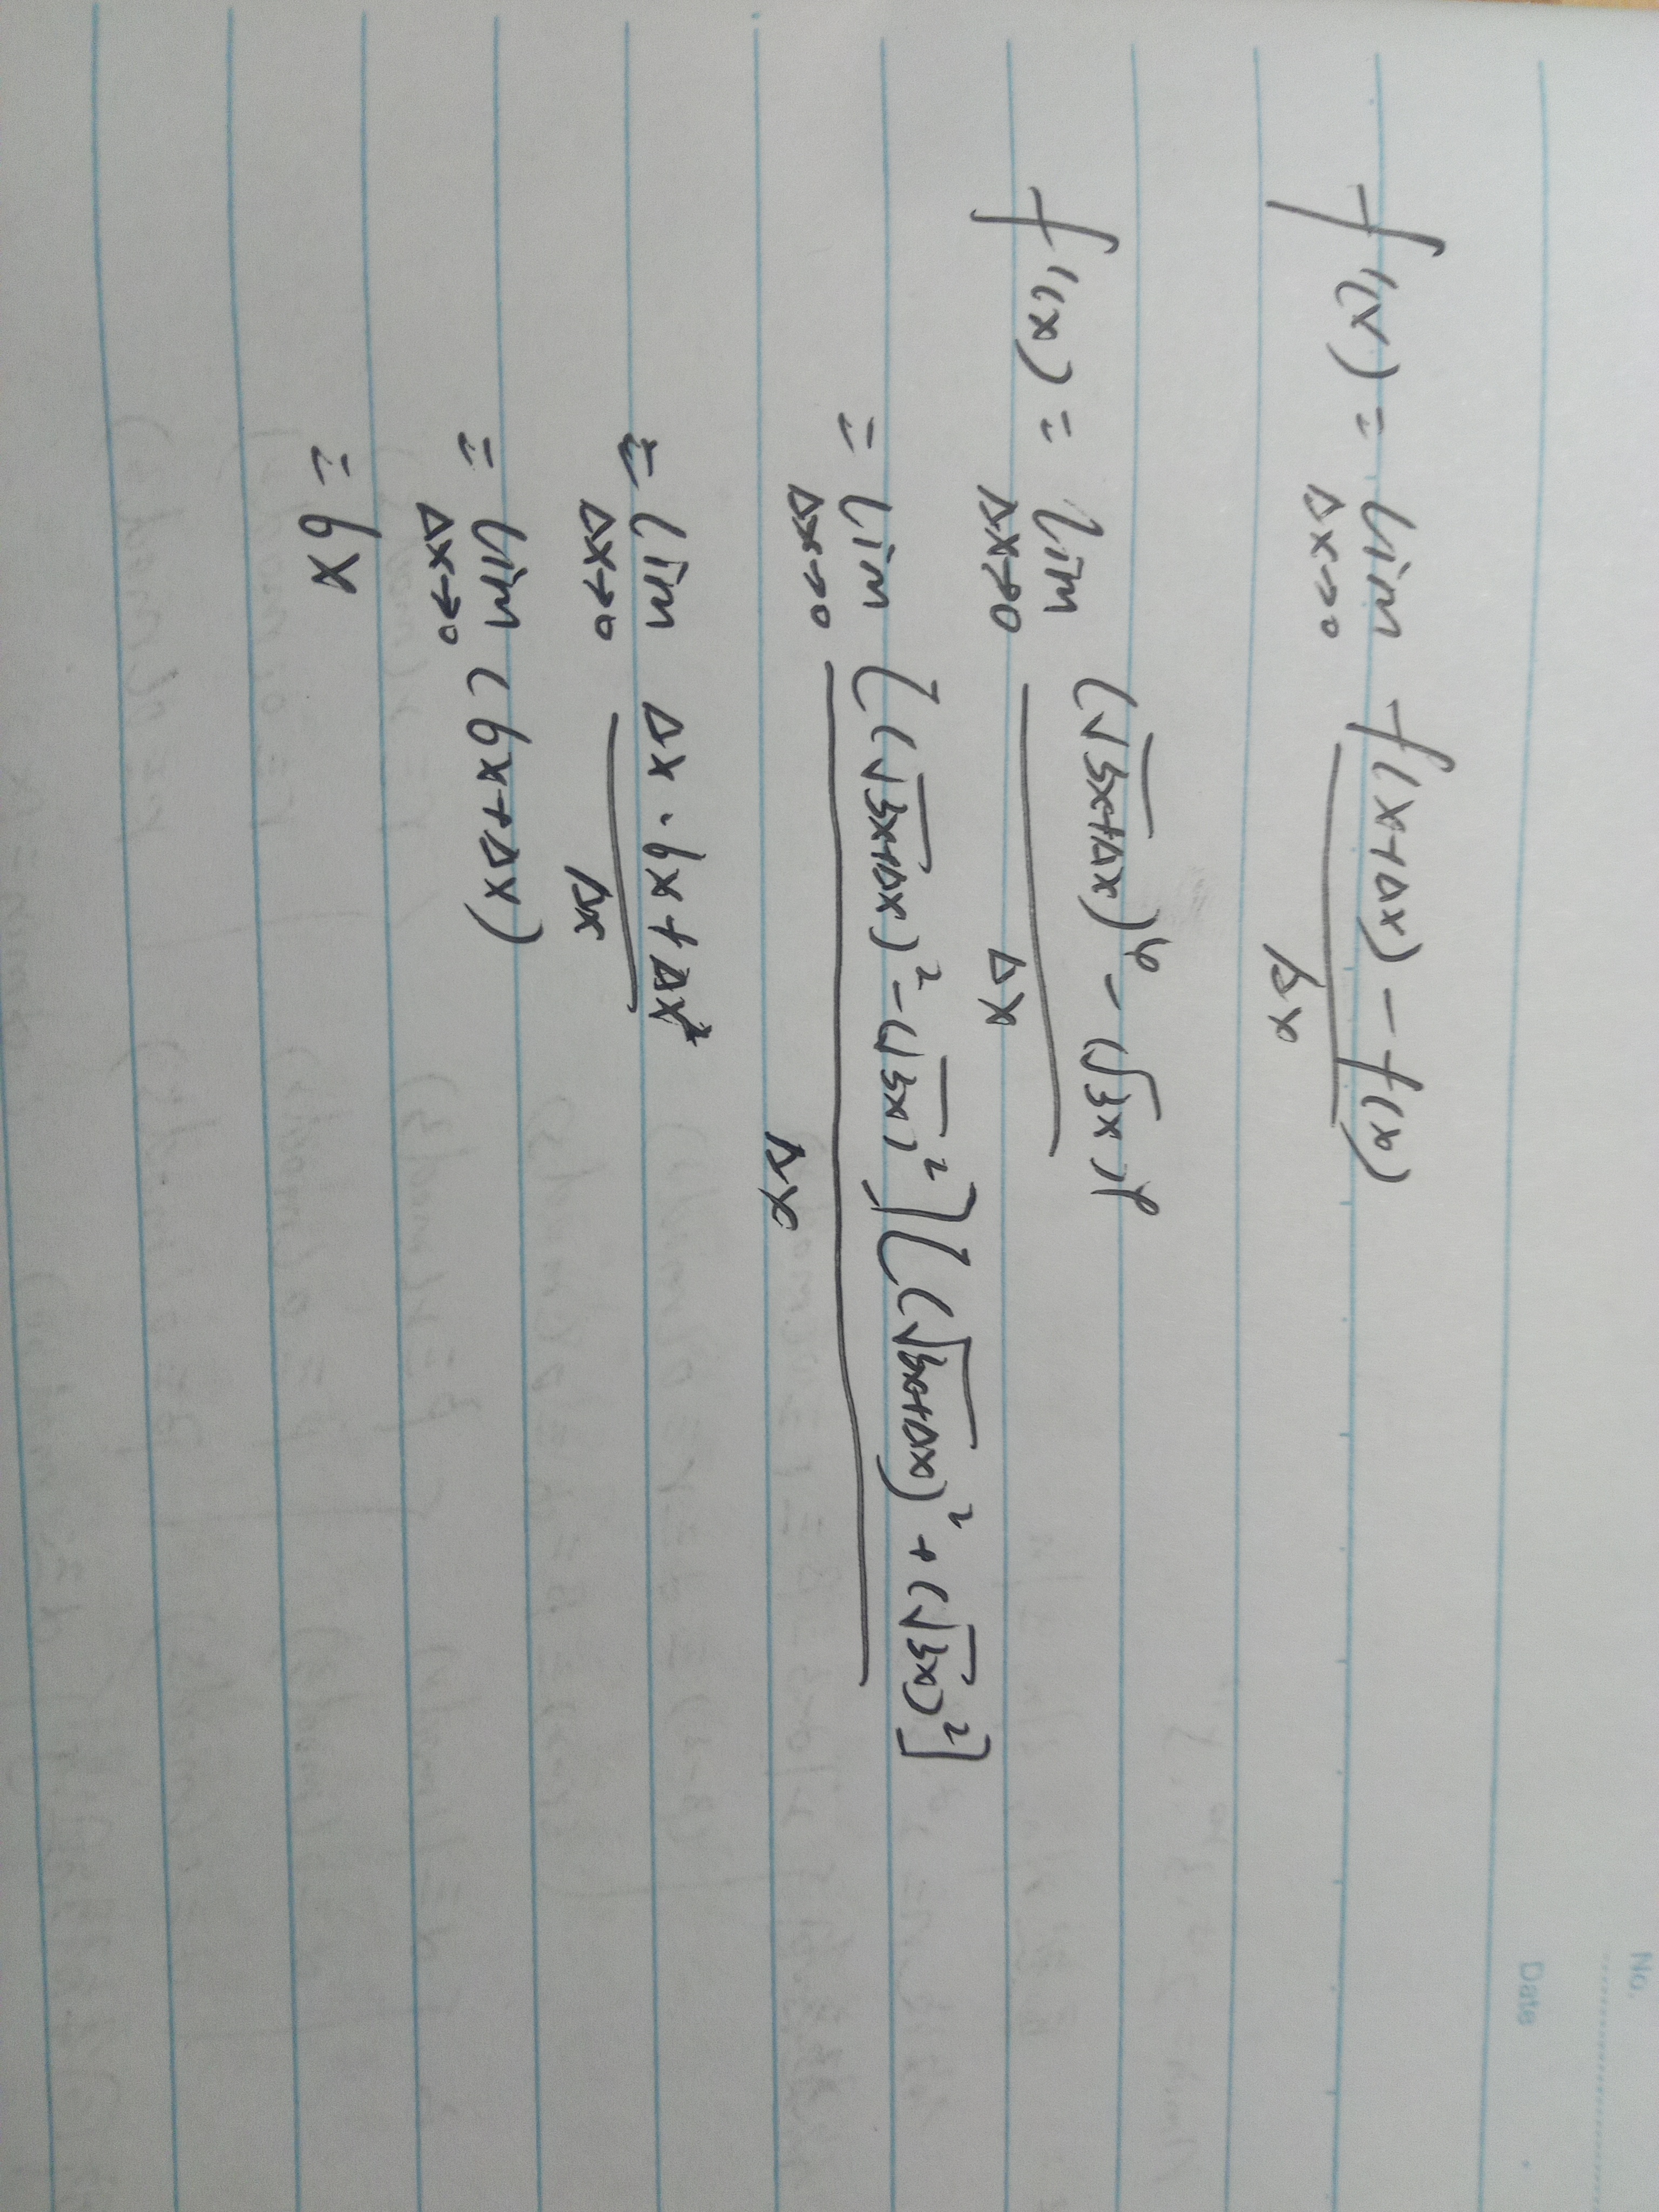 No.
Date
f'(x) = lim Δx→0 f(x+Δx) - f(x) / Δx
f'(x) = lim Δx→0 (√3x+Δx)⁴ - (√3x)⁴ / Δx
= lim Δx→0 [(√3x+Δx)² - (√3x)²][(√3x+Δx)² + (√3x)²] / Δx
= lim Δx→0 Δx · 6x + Δx² / Δx
= lim Δx→0 (6x+Δx)
= 6x